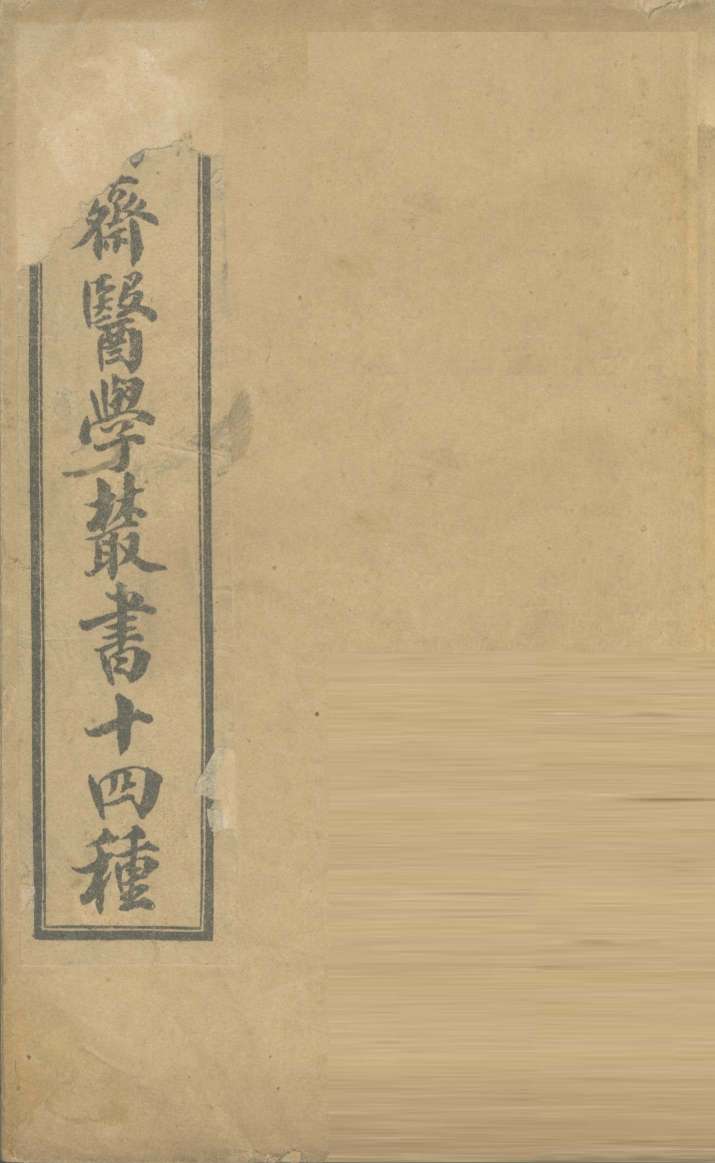 齋醫學叢書十四種